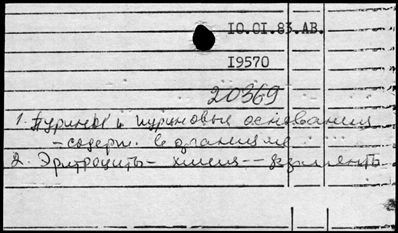 10.01.83.АВ.
19570
20369
1. Пурины и пуриновые основания
- содерж. в организме
2. Эритроциты - химия -- ферменты